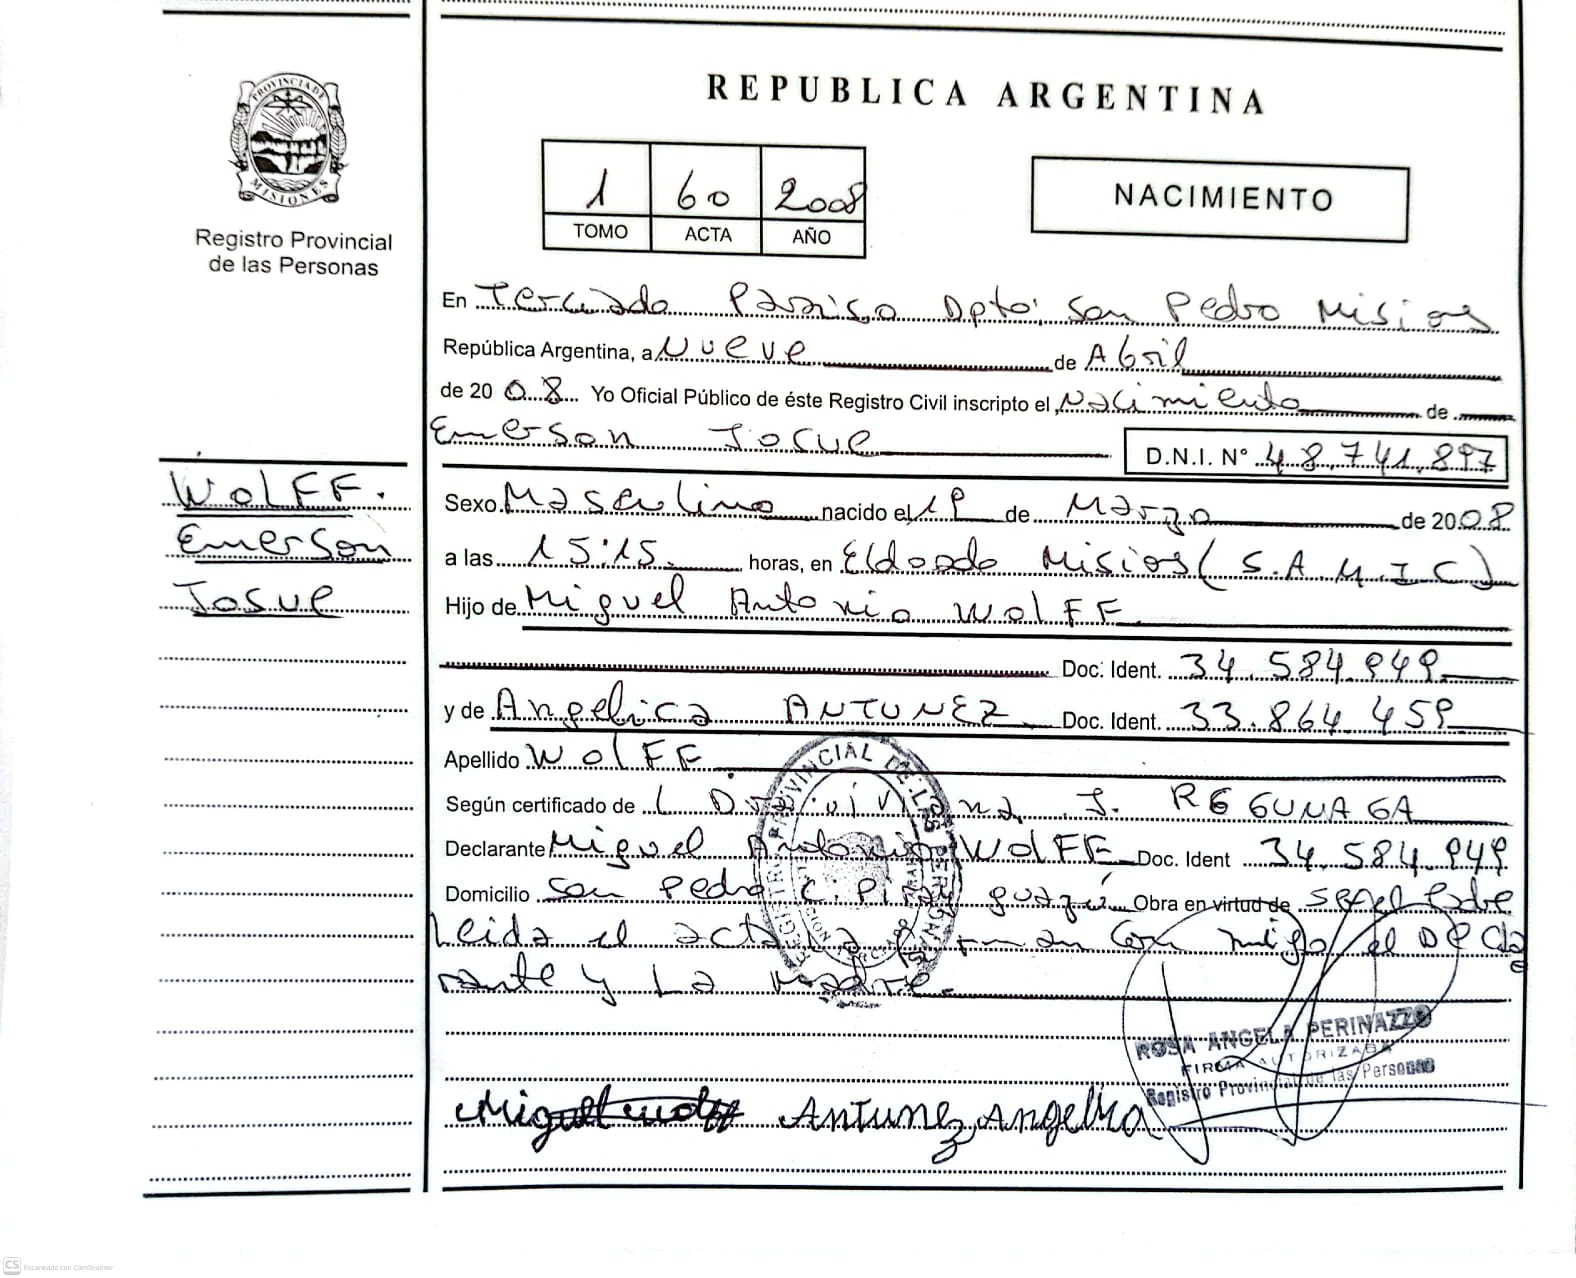 PROVINCIA DE
MISIONES
Registro Provincial
de las Personas
REPUBLICA ARGENTINA
1 60 2008
TOMO ACTA AÑO
NACIMIENTO
En Terciado Paraiso Dpto: San Pedro Misiones
República Argentina, a Nueve de Abril
de 20 08 Yo Oficial Público de éste Registro Civil inscripto el Nacimiento de
Emerson Josue D.N.I. N° 48.741.897
WOLFF.
Emerson
Josue
Sexo Masculino nacido el 19 de Marzo de 2008
a las 15:15 horas, en Eldorado Misiones (S.A.M.I.C)
Hijo de Miguel Antonio WOLFF
Doc. Ident. 34.584.949
y de Angelica ANTUNEZ Doc. Ident. 33.864.459
Apellido WOLFF
Según certificado de J. REGUNAGA
Declarante Miguel Antonio WOLFF Doc. Ident 34.584.949
Domicilio San Pedro C. Piray guazú Obra en virtud de ser el Padre
Leida el acta la firman con migo el Decla
rante y La madre.
REGISTRO PROVINCIAL DE LAS PERSONAS
ROSA ANGELA PERINAZZO
FIRMA AUTORIZADA
Registro Provincial de las Personas
Miguel Wolff Antunez Angelica
CS Escaneado con CamScanner